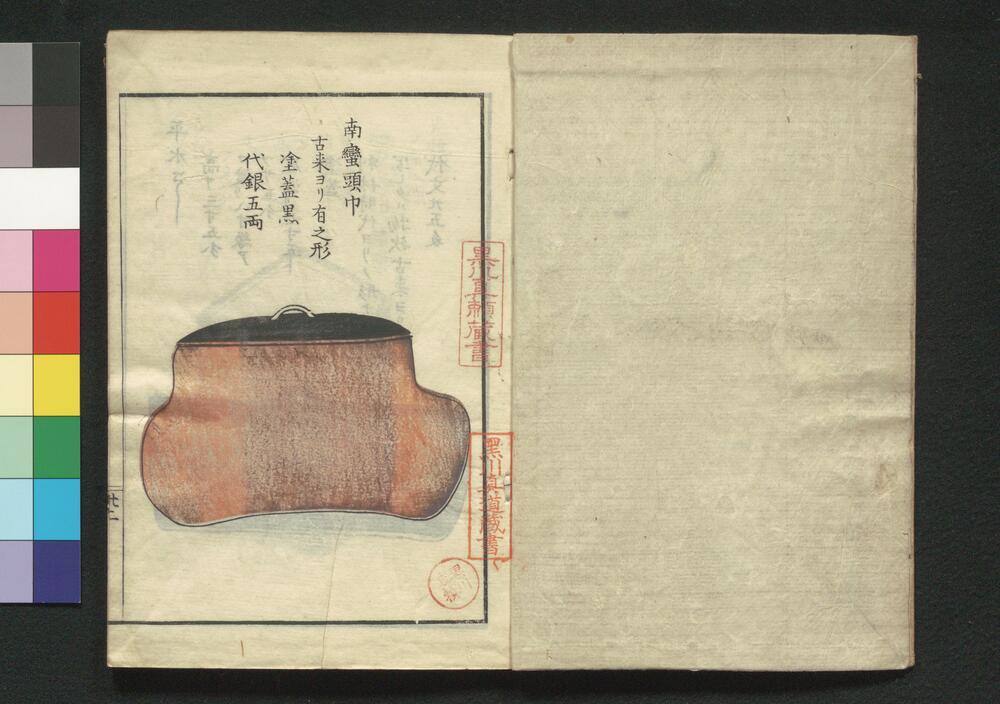 南蠻頭巾
古来ヨリ有之形
塗蓋黒
代銀五両
黒川真頼蔵書
黒川真道蔵書
廿二